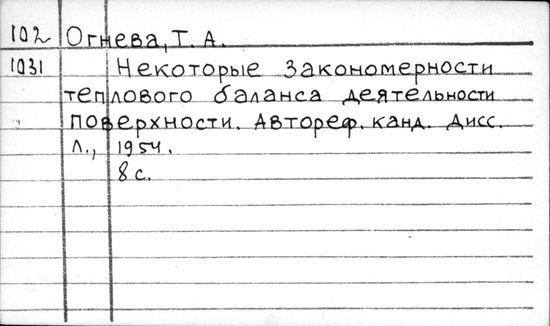 102 Огнева, Т. А.
1031 Некоторые закономерности
теплового баланса деятельности
поверхности. Автореф. канд. дисс.
Л., 1954.
8 с.